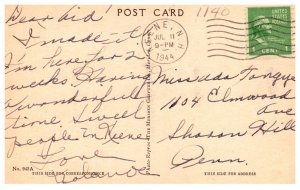 POST CARD
1140
Dear Aid!
I made it!
I'm here for 2
weeks. Having
a wonderful
time. Sweet
people in Keene
Love
KEENE
JUL 11
9-PM
1944
N.H.
1 CENT 1
Miss Ada
1104 Elmwood
Ave
Sharon Hill
Penn.
No. 942A
THIS SIDE FOR CORRESPONDENCE
THIS SIDE FOR ADDRESS